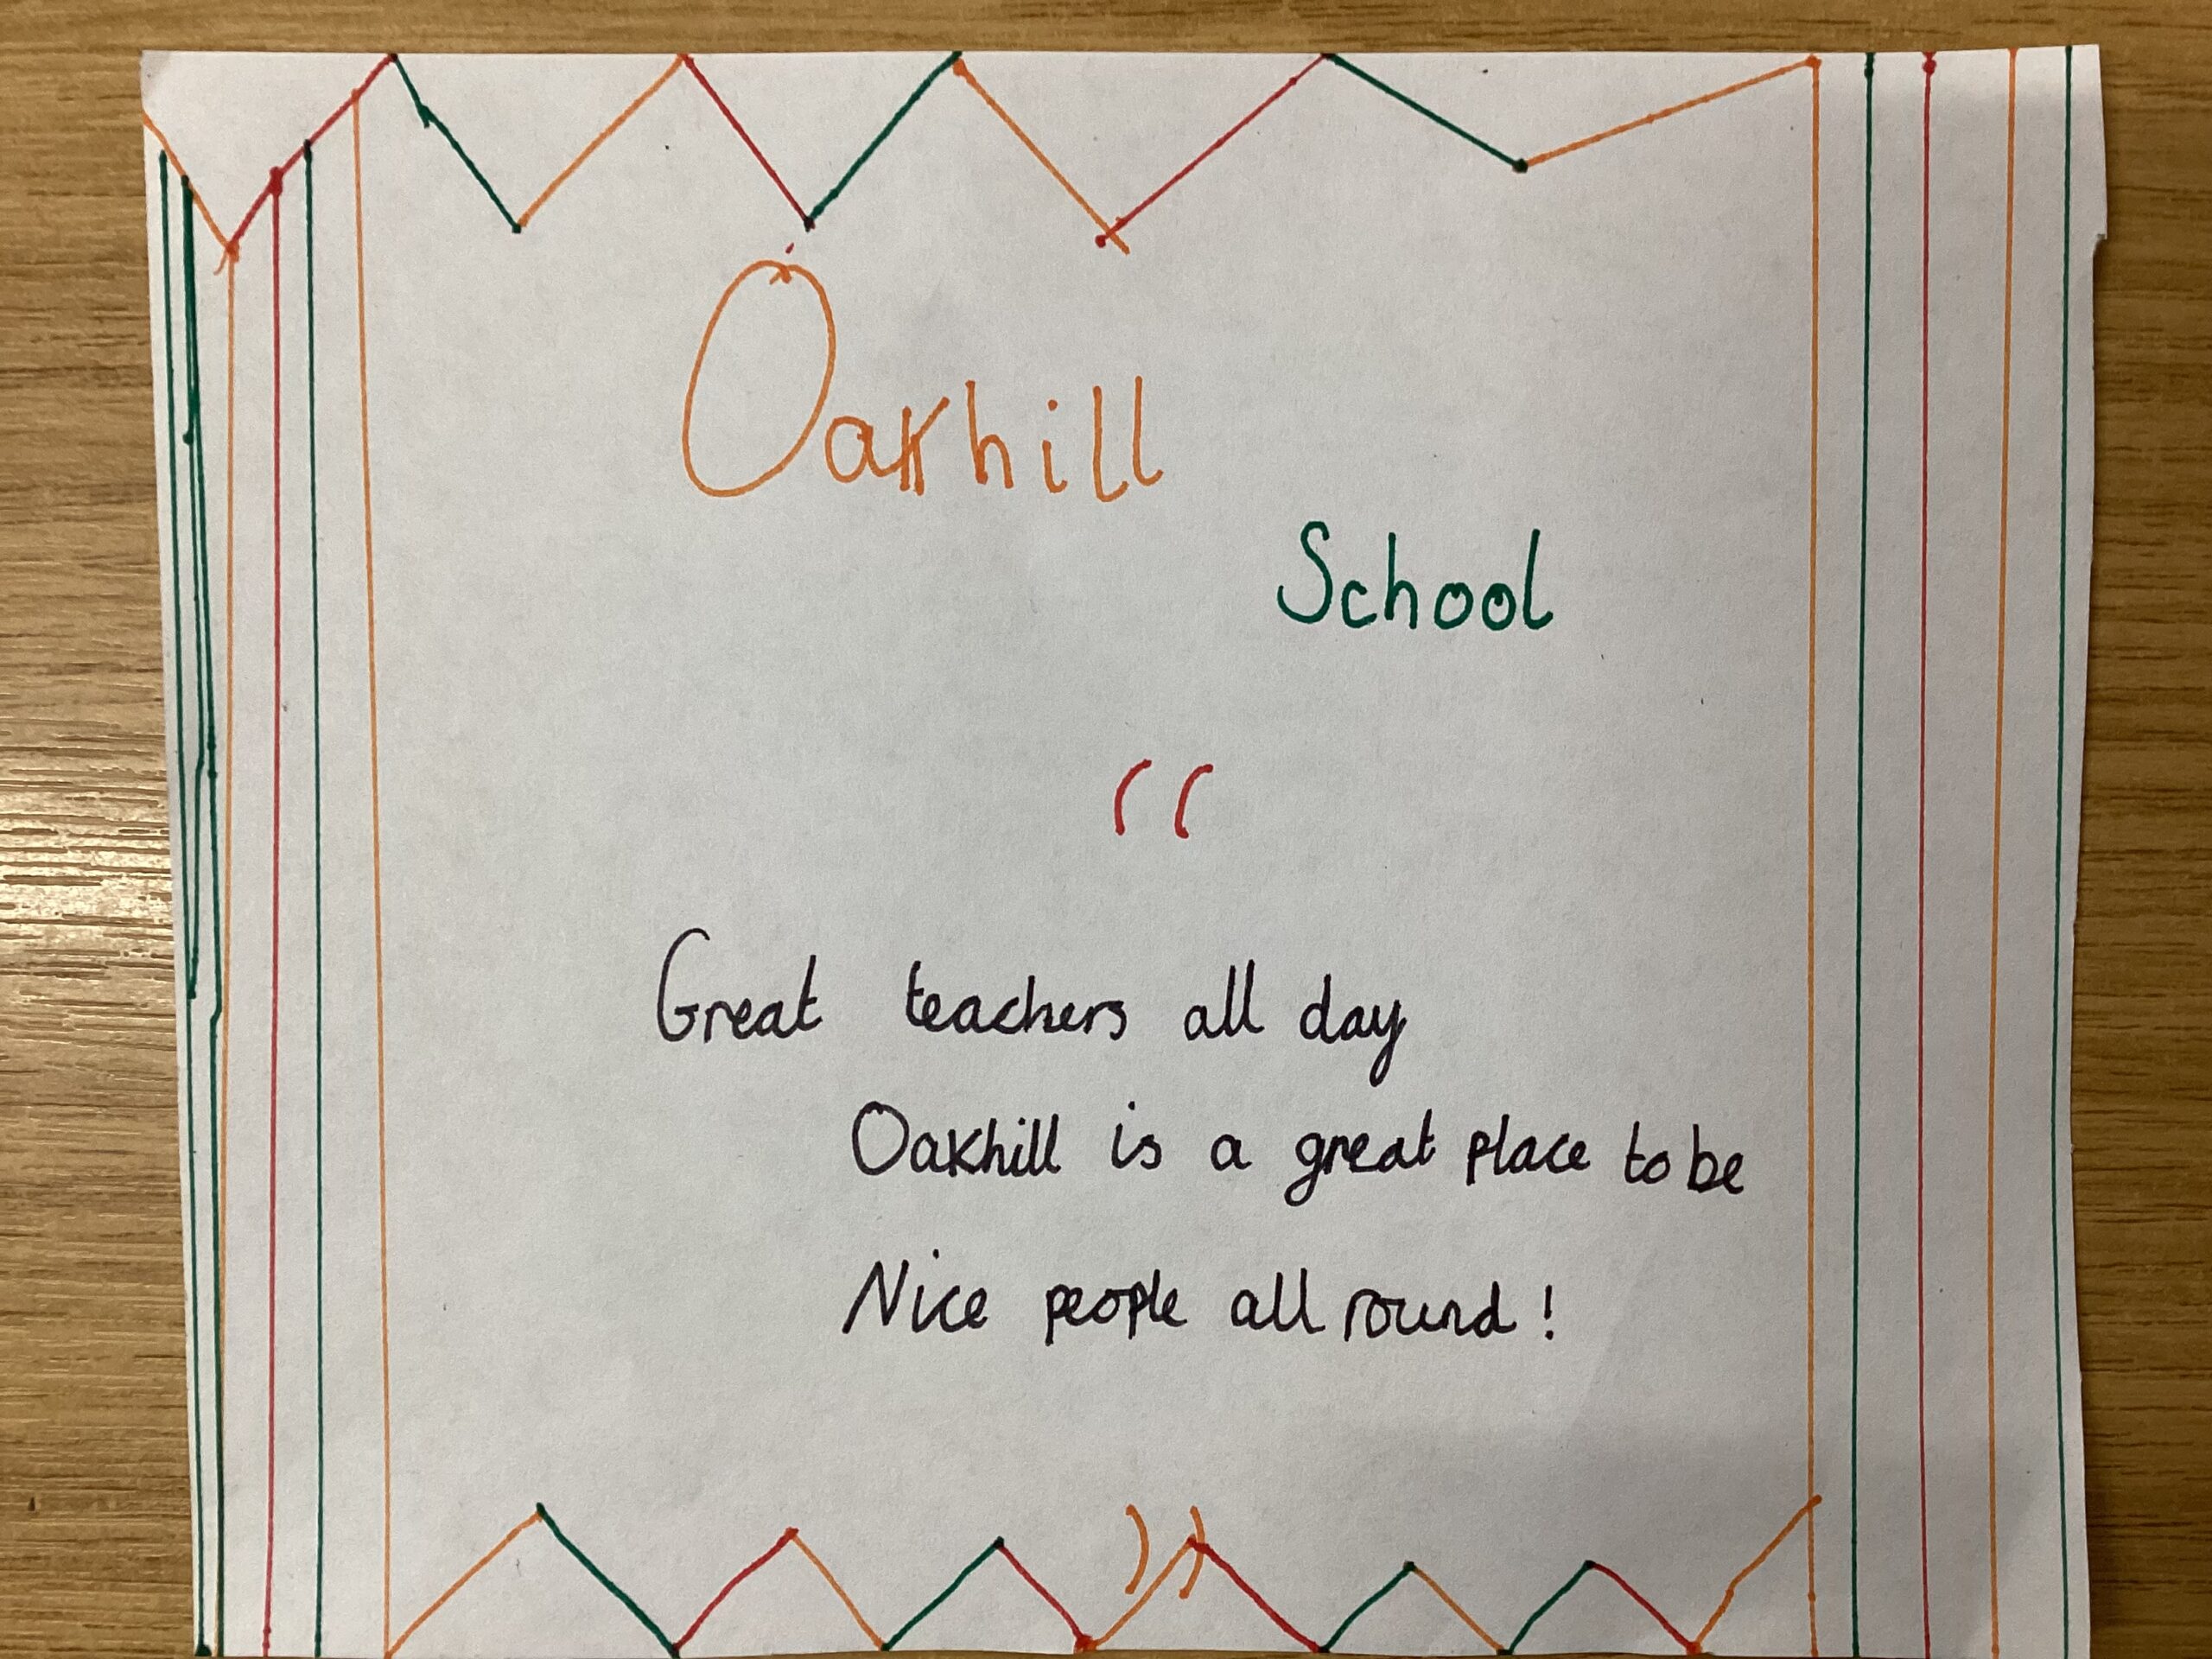 Oakhill
School
“
Great teachers all day
Oakhill is a great place to be
Nice people all round!
”